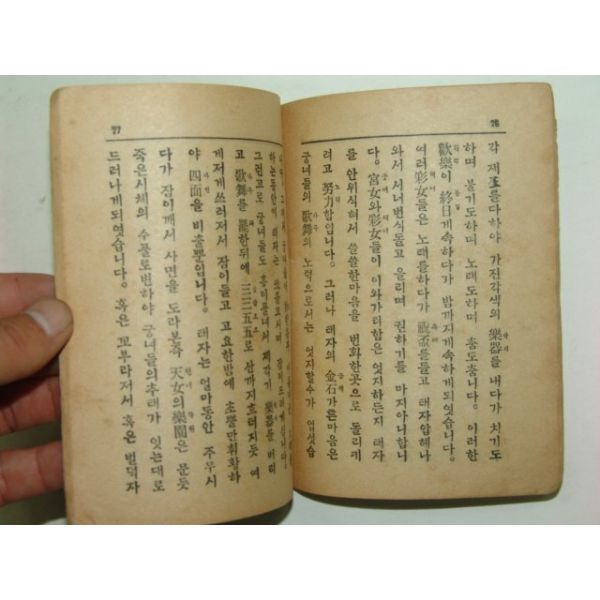 76
각 재조를다하야 가진각색의 樂器를 내다가 치기도
하며 불기도하며 노래도하며 춤도춥니다。이러한
歡樂이 終日게속하다가 밤까지게속하게되엿습니다。
여러 彩女들은 노래를하다가 잔을들고 태자압헤나
와서 서너번식돌고 올리며 권하기를 마지아니합니
다。宮女와彩女들이 이와가티함은 엇지하든지 태자
를 안위식혀서 쓸쓸한마음을 번화한곳으로 돌리키
려고 努力함입니다。그러나 태자의 金石가튼마음은
궁녀들의 歌舞의 노력으로서는 엇지할수가 업섯습
77
그런고로 궁녀들도 흥이풀녀서 제각기 樂器를 버리
고 歌舞를 罷한뒤에 三三五五로 산까지흐터지듯 여
게저게쓰러저서 잠이들고 고요한밤에 초불만휘황하
야 四面을 비출뿐입니다。태자는 얼마동안 주무시
다가 잠이깨서 사면을 도라본즉 天女의樂園은 문듯
죽은시체의 수풀로변하야 궁녀들의추태가 잇는대로
드러나게되엿습니다。혹은 꼬부라저서 혹은 번덕자